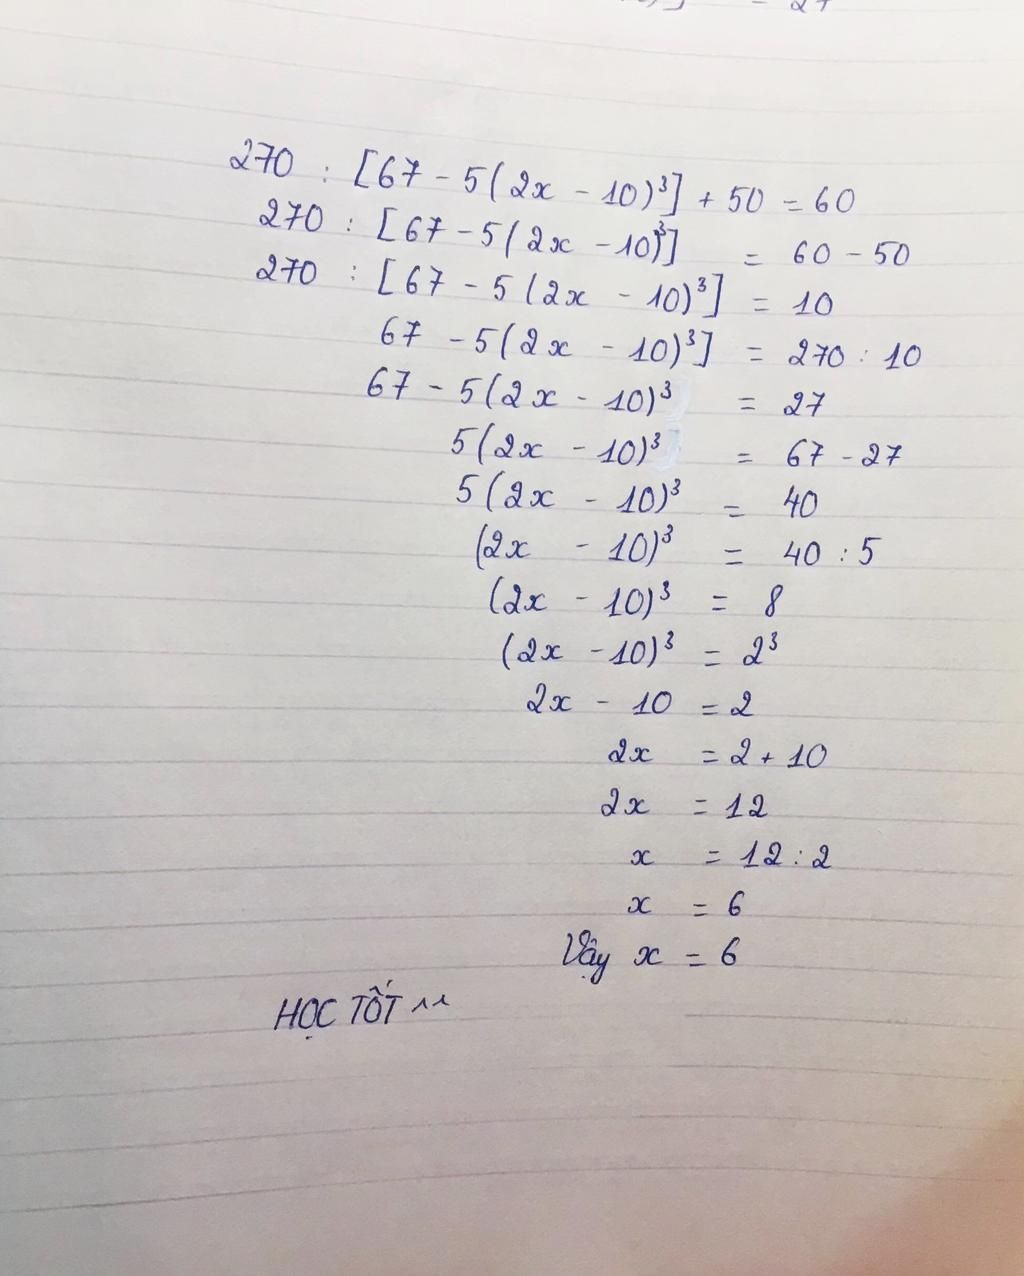 270 : [67 - 5(2x - 10)³] + 50 = 60
270 : [67 - 5(2x - 10)³] = 60 - 50
270 : [67 - 5(2x - 10)³] = 10
67 - 5(2x - 10)³] = 270 : 10
67 - 5(2x - 10)³ = 27
5(2x - 10)³ = 67 - 27
5(2x - 10)³ = 40
(2x - 10)³ = 40 : 5
(2x - 10)³ = 8
(2x - 10)³ = 2³
2x - 10 = 2
2x = 2 + 10
2x = 12
x = 12 : 2
x = 6
Vậy x = 6
HỌC TỐT ^^